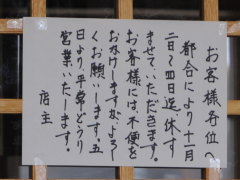 お客様各位へ
都合により十一月
二日～四日迄休す
ませていただきます。
お客様には、不便を
おかけしますがよろし
くお願いします。五
日より平常どうり
営業いたします。
店主